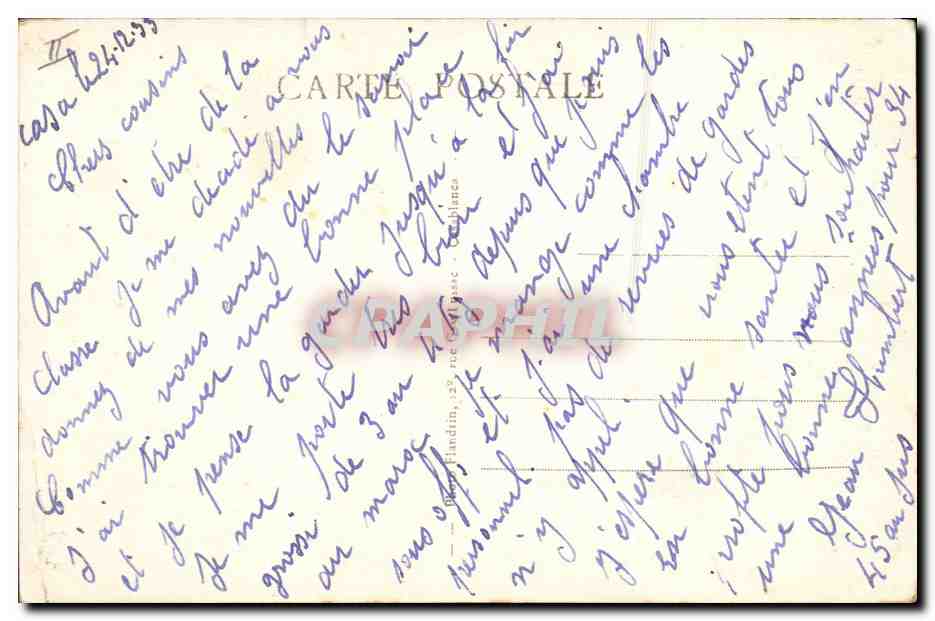 II
Casa le 24-12-33
Chers cousins
Avant d'etre de la
classe je me decide a vous
donnez de mes nouvelles
Comme vous avez du le savoir
j'ai trouver une bonne place
et je pense la garder jusqu'à la fin
Je me porte tres bien et j'ai
grossi de 3 au 4 kg depuis que je suis
au maroc je mange comme les
sous offs et j'ai une chambre
personnel pas de revues de gardes
n'y appel
j'espere que vous etent tous
en bonne sante et j'en
profite pour vous souhaiter
une bonne année pour 34
Jean Humbert
45 au jus
CARTE POSTALE
Photo Flandrin, 128, rue Casablanca
CPAPHIL